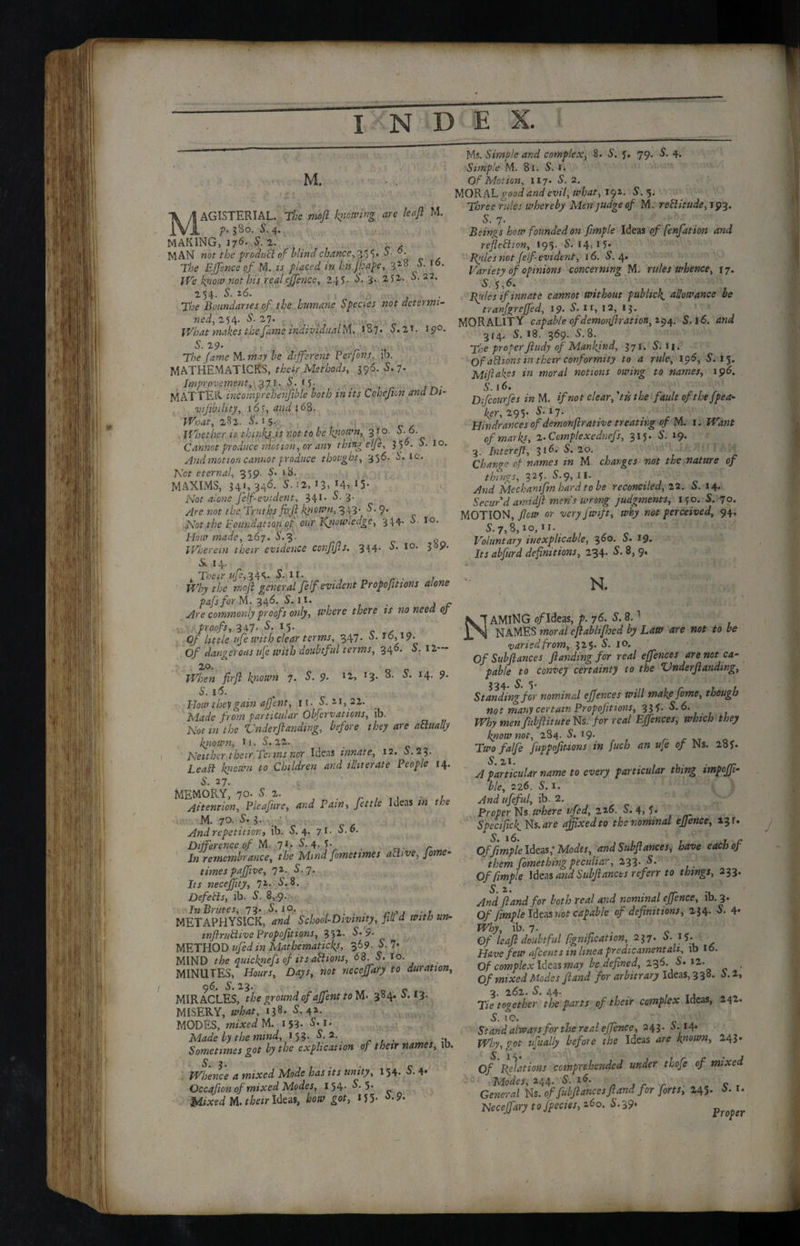 INDEX.
M.
MAGISTERIAL. The most knowing are least M.
p. 380. S. 4.
MAKING, 176. S. 2.
MAN not the product of blind chance, 355. S. 6.
The Essence of M. is placed in his shape, 328 S. 16.
We know not his real essence, 245. S. 3. 252. S. 22.
254. S. 26.
The Boundaries of the humane Species not determi-
ned, 254. S. 27.
What makes the same individual M. 187. S. 21. 190.
S. 29.
The same M. may be different Persons, ib.
MATHEMATICKS, their Methods, 396. S. 7.
Improvement, 371. S. 15.
MATTER incomprehensible both in its Cohesion and Di-
visibility, 165, and 168.
What, 282. S. 15.
Whether it thinks is not to be known, 310. S. 6.
Cannot produce motion, or any thing else, 356. S. 10.
And motion cannot produce thought, 356. S. 10.
Not eternal, 359. S. 18.
MAXIMS, 341, 346. S. 12, 13, 14, 15.
Not alone self-evident, 341. S. 3.
Are not the Truths first known, 343. S. 9.
Not the Foundation of our Knowledge, 344. S. 10.
How made, 267. S. 3.
Wherein their evidence consists. 344. S. 10. 389.
S. 14.
Their use, 345. S. 11.
Why the most general self evident Propositions alone
pass for M. 346. S. 11.
Are commonly proofs only, where there is no need of
proofs, 347. S. 15.
Of little use with clear terms, 347. S. 16, 19.
Of dangerous use with doubtful terms, 346. S. 12—
20.
When first known 7. S. 9. 12, 13. 8. S. 14. 9.
S. 16.
How they gain assent, 11. S. 21, 22.
Made from particular Observations, ib.
Not in the Understanding, before they are actually
known, 11. S. 22.
Neither their Terms nor Ideas innate, 12. S. 23.
Least known to Children and illiterate People 14.
S. 27.
MEMORY, 70. S. 2.
Attention, Pleasure, and Pain, settle Ideas in the
M. 70. S. 3.
And repetition, ib. S. 4. 71. S. 6.
Difference of M. 71. S. 4, 5.
In remembrance, the Mind sometimes active, some-
times passive, 72. S. 7.
Its necessity, 72. S. 8.
Defects, ib. S. 8, 9.
In Brutes, 73. S. 10.
METAPHYSICK, and School-Divinity, fill'd with un-
instructive Propositions, 352. S. 9.
METHOD used in Mathematicks, 369. S. 7.
MIND the quickness of its actions, 68. S. 10.
MINUTES, Hours, Days, not necessary to duration,
96. S. 23.
MIRACLES, the ground of assent to M. 384. S. 13.
MISERY, what, 138. S. 42.
MODES, mixed M. 153. S. 1.
Made by the mind, 153. S. 2.
Sometimes got by the explication of their names, ib.
S. 3.
Whence a mixed Mode has its unity, 154. S. 4.
Occasion of mixed Modes, 154. S. 5.
Mixed M. their Ideas, how got, 155. S. 9.
Ms. Simple and complex, 8. S. 5. 79. S. 4.
Simple M. 81. S. 1.
Of Motion, 117. S. 2.
MORAL good and evil, what, 192. S. 5.
Three rules whereby Men judge of M. rectitude, 193.
S. 7.
Beings how founded on simple Ideas of sensation and
reflection, 195. S. 14, 15.
Rules not self-evident, 16. S. 4.
Variety of opinions concerning M. rules whence, 17.
S. 5, 6.
Rules if innate cannot without publick allowance be
transgressed, 19. S. 11, 12, 13.
MORALITY capable of demonstration, 294. S. 16. and
314. S. 18. 369. S. 8.
The proper study of Mankind, 371. S. 11.
Of actions in their conformity to a rule, 196, S. 15.
Mistakes in moral notions owing to names, 196.
S. 16.
Discourses in M. if not clear, 'tis the fault of the spea-
ker, 295. S. 17.
Hindrances of demonstrative treating of M. 1. Want
of marks, 2. Complexedness, 315. S. 19.
3. Interest, 316. S. 20.
Change of names in M changes not the nature of
things, 325. S. 9, 11.
And Mechanism hard to be reconciled, 22. S. 14.
Secur'd amidst men's wrong judgments, 150. S. 70.
MOTION, slow or very swift, why not perceived, 94.
S. 7, 8, 10, 11.
Voluntary inexplicable, 360. S. 19.
Its absurd definitions, 234. S. 8, 9.
N.
NAMING of Ideas, p. 76. S. 8.
NAMES moral established by Law are not to be
varied from, 325. S. 10.
Of Substances standing for real essences are not ca-
pable to convey certainty to the Understanding,
334. S. 5.
Standing for nominal essences will make some, though
not many certain Propositions, 335. S. 6.
Why men substitute Ns. for real Essences, which they
know not, 284. S. 19.
Two false suppositions in such an use of Ns. 285.
S. 21.
A particular name to every particular thing impossi-
ble, 226. S. 1.
And useful, ib. 2.
Proper Ns where used, 226. S. 4, 5.
Specifick Ns. are affixed to the nominal essence, 231.
S. 16.
Of simple Ideas, Modes, and Substances, have each of
them something peculiar, 233. S.
Of simple Ideas and Substances referr to things, 233.
S. 2.
And stand for both real and nominal essence, ib. 3.
Of simple Ideas not capable of definitions, 234. S. 4.
Why, ib. 7.
Of least doubtful signification, 237. S. 15.
Have few ascents in linea predicamentali, ib 16.
Of complex Ideas may be defined, 236. S. 12.
Of mixed Modes stand for arbitrary Ideas, 338. S. 2,
3. 262. S. 44.
Tie together the parts of their complex Ideas, 242.
S. 10.
Stand always for the real essence, 243. S. 14.
Why, got usually before the Ideas are known, 243.
S. 15.
Of Relations comprehended under those of mixed
Modes, 244. S. 16.
General Ns. of substances stand for sorts, 245. S. 1.
Necessary to species, 260. S. 39.
Proper